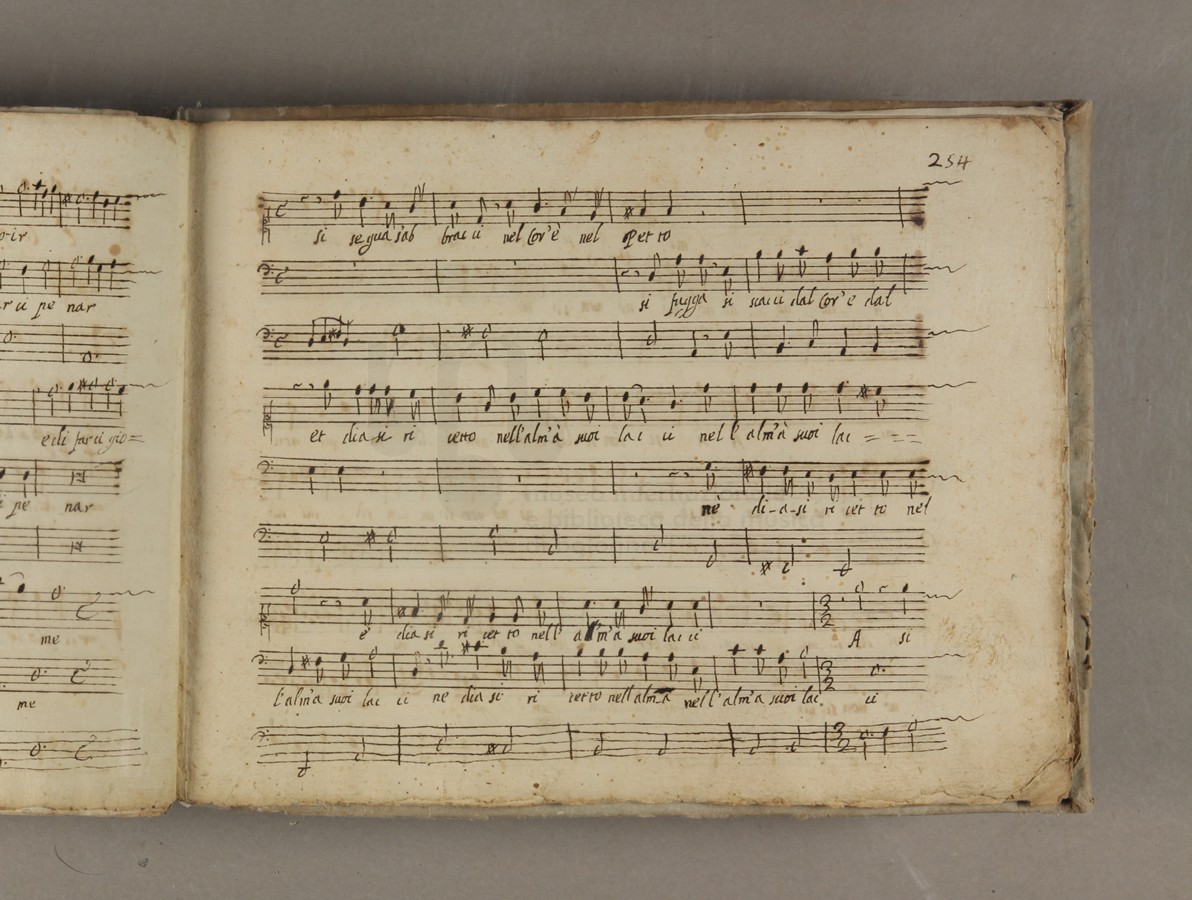 254
o-ir
si segua s'ab brac ci nel Cor'è nel petto
r ci pe nar
si fugga si scacci dal Cor'e dal
e di farci gio=
et dia si ri cetto nell'alm'à suoi lac ci nell'alm'à suoi lac = = = =
i pe nar
nè di-a-si ri cet to nel
me
è dia si ri cet to nell' alm'à suoi lac ci A si
me
l'alm'a suoi lac ci ne dia si ri cetto nell alm à nell'alm'a suoi lac. ci
museo internazionale
e biblioteca della musica